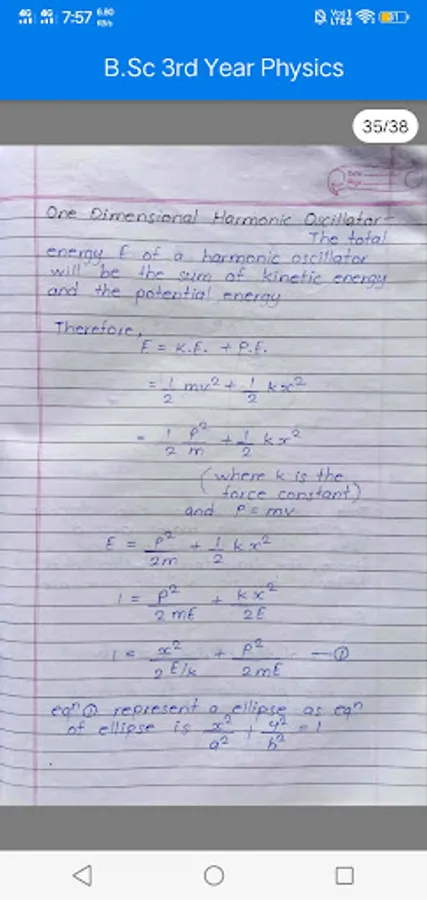 7:57 6.80 KB/s Vo) LTE2
B.Sc 3rd Year Physics
35/38
One Dimensional Harmonic Oscillator-
The total
energy E of a harmonic oscillator
will be the sum of kinetic energy
and the potential energy
Therefore,
E = K.E. + P.E.
= 1/2 mv² + 1/2 kx²
= 1/2 p²/m + 1/2 kx²
(where k is the
force constant)
and P = mv
E = p²/2m + 1/2 kx²
1 = p²/2mE + kx²/2E
1 = x²/2E/k + p²/2mE —①
eqⁿ ① represent a ellipse as eqⁿ
of ellipse is x²/a² + y²/b² = 1